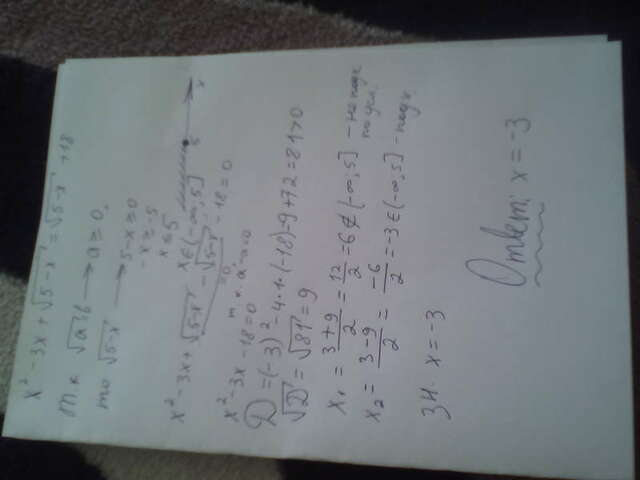 x² - 3x + √5-x = √5-x + 18
т.к √a → a ≥ 0,
то √5-x → 5-x ≥ 0
-x ≥ -5
x ≤ 5
5 x
x ∈ (-∞; 5]
x² - 3x + √5-x - √5-x - 18 = 0
=0
т.к. a - a = 0
x² - 3x - 18 = 0
D = (-3)² - 4·1·(-18) = 9 + 72 = 81 > 0
√D = √81 = 9
x₁ = 3+9/2 = 12/2 = 6 ∉ (-∞; 5] - не подх
по усл.
x₂ = 3-9/2 = -6/2 = -3 ∈ (-∞; 5] - подх
Зн. x = -3
Ответ: x = -3